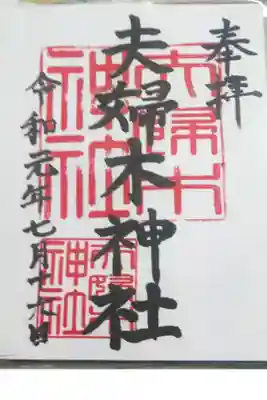 奉拝
夫婦木神社
令和元年七月十六日
夫婦木
神社
夫婦木
神社